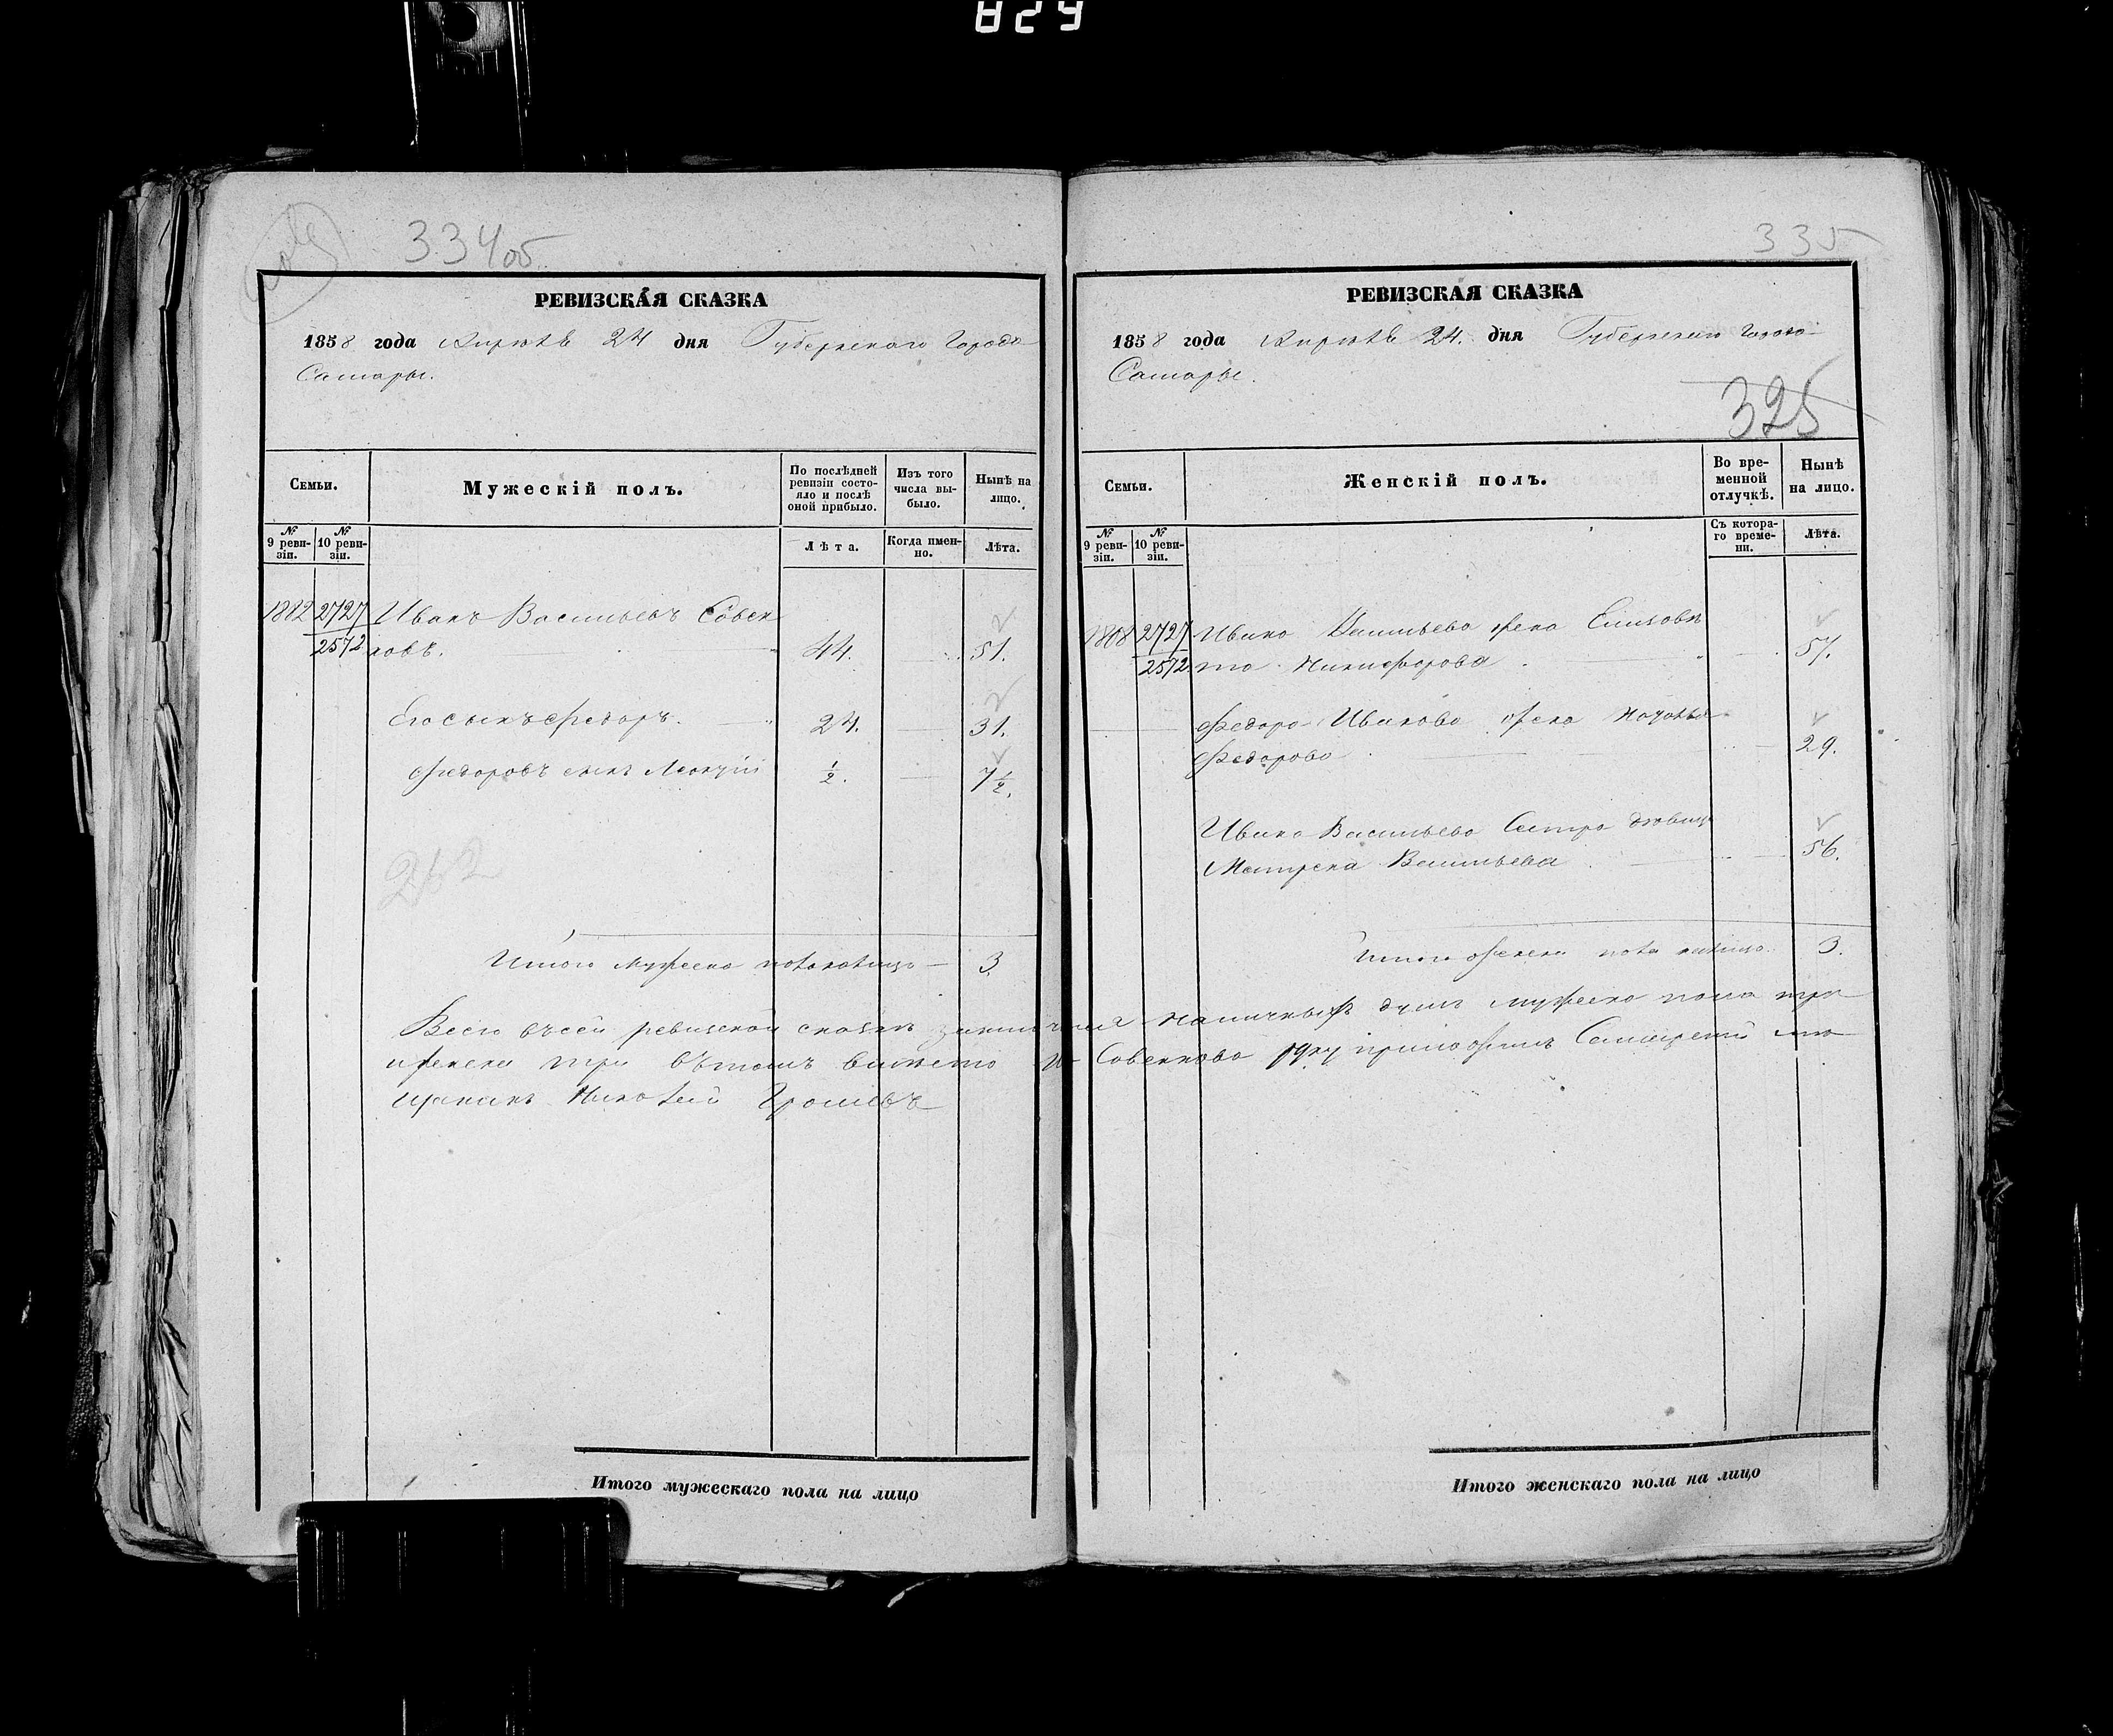 829
334об
РЕВИЗСКАЯ СКАЗКА
1858 года Апреля 24 дня Губернского Города
Самары.
Семьи.
Мужескій полъ.
По послѣдней ревизіи состояло и послѣ оной прибыло.
Изъ того числа выбыло.
Нынѣ на лицо.
№ 9 ревизіи.
№ 10 ревизіи.
Лѣта.
Когда именно.
Лѣта.
1882 2727 Иванъ Васильевъ Совен
2572 ковъ. 44. 51.
Его сынъ Федоръ. 24. 31.
Федоровъ сынъ 1/2. 7 1/2.
262
Итого мужеска пола налицо 3
РЕВИЗСКАЯ СКАЗКА
335
1858 года Апреля 24. дня Губернского города
Самары.
325
Семьи.
Женскій полъ.
Во временной отлучкѣ.
Нынѣ на лицо.
№ 9 ревизіи.
№ 10 ревизіи.
Съ котораго времени.
Лѣта.
2727 Ивана Васильева жена Елизаве
2572 та Никифорова 57.
Федора Иванова жена Наталья
Федорова 29.
Ивана Васильева Сестра девица
Матрена Васильева 56.
Итого женска пола налицо 3.
Всего въ сей ревизской сказке наличныхъ душъ мужеска пола три
женска три въ томъ вместо Совенкова руку приложилъ Самарский ме
щанинъ Николай
Итого мужескаго пола на лицо
Итого женскаго пола на лицо